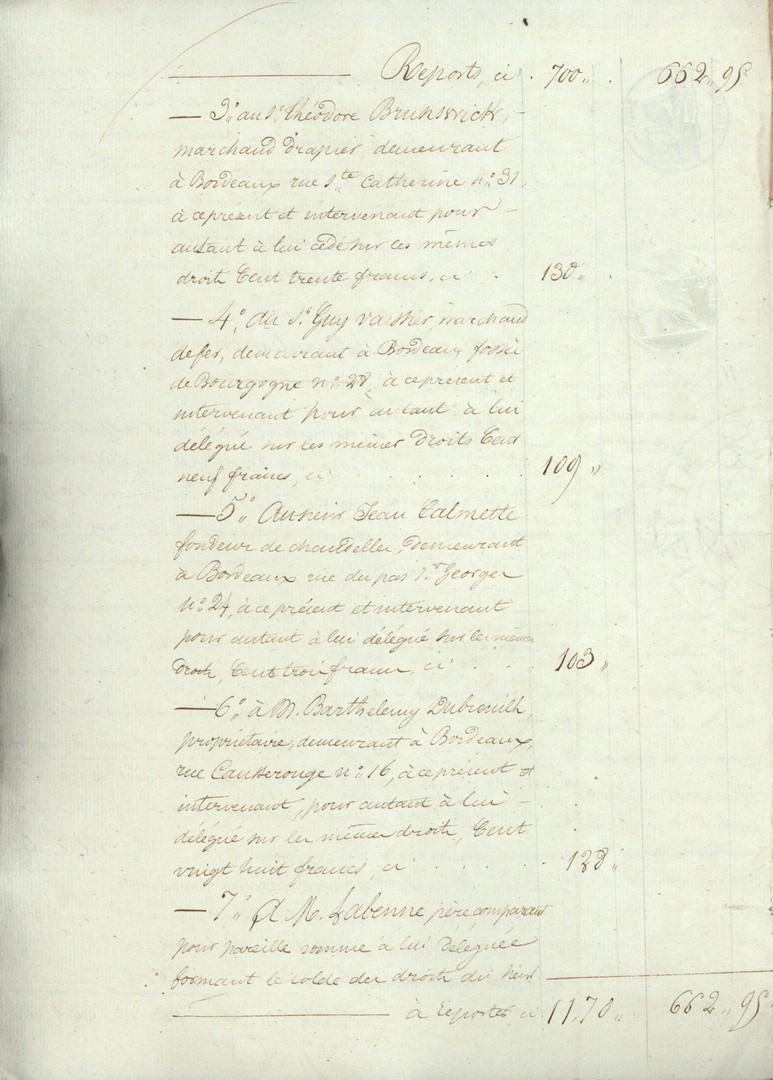 Reports, ci . 700 „ . 662 „ 95
— 3.° au S.r Théodore Brunswick,
marchand drapier, demeurant
à Bordeaux rue S.te Catherine n.° 31,
à ce présent et intervenant pour
autant à lui cédé sur les mêmes
droits Cent trente francs, ci . 130 „
— 4.° au S.r Guy Vaisher, marchand
de fer, demeurant à Bordeaux fossé
de Bourgogne n.° 28, à ce présent et
intervenant pour autant à lui
délégué sur les mêmes droits Cent
neuf francs, ci . . . . 109 „
— 5.° Au sieur Jean Calmette
fondeur de chandelles, demeurant
à Bordeaux rue du pas S.t Georges
n.° 24, à ce présent et intervenant
pour autant à lui délégué sur les mêmes
droits, Cent trois francs, ci . . . 103 „
— 6.° à M. Barthelemy Dubreuilh,
propriétaire, demeurant à Bordeaux,
rue Causserouge n.° 16, à ce présent et
intervenant, pour autant à lui
délégué sur les mêmes droits, Cent
vingt huit francs, ci . . . . 128 „
— 7.° A M. Labenne père comparant
pour pareille somme à lui déléguée
formant le solde des droits du sieur
à reporter ci 11,70 „ 662 „ 95